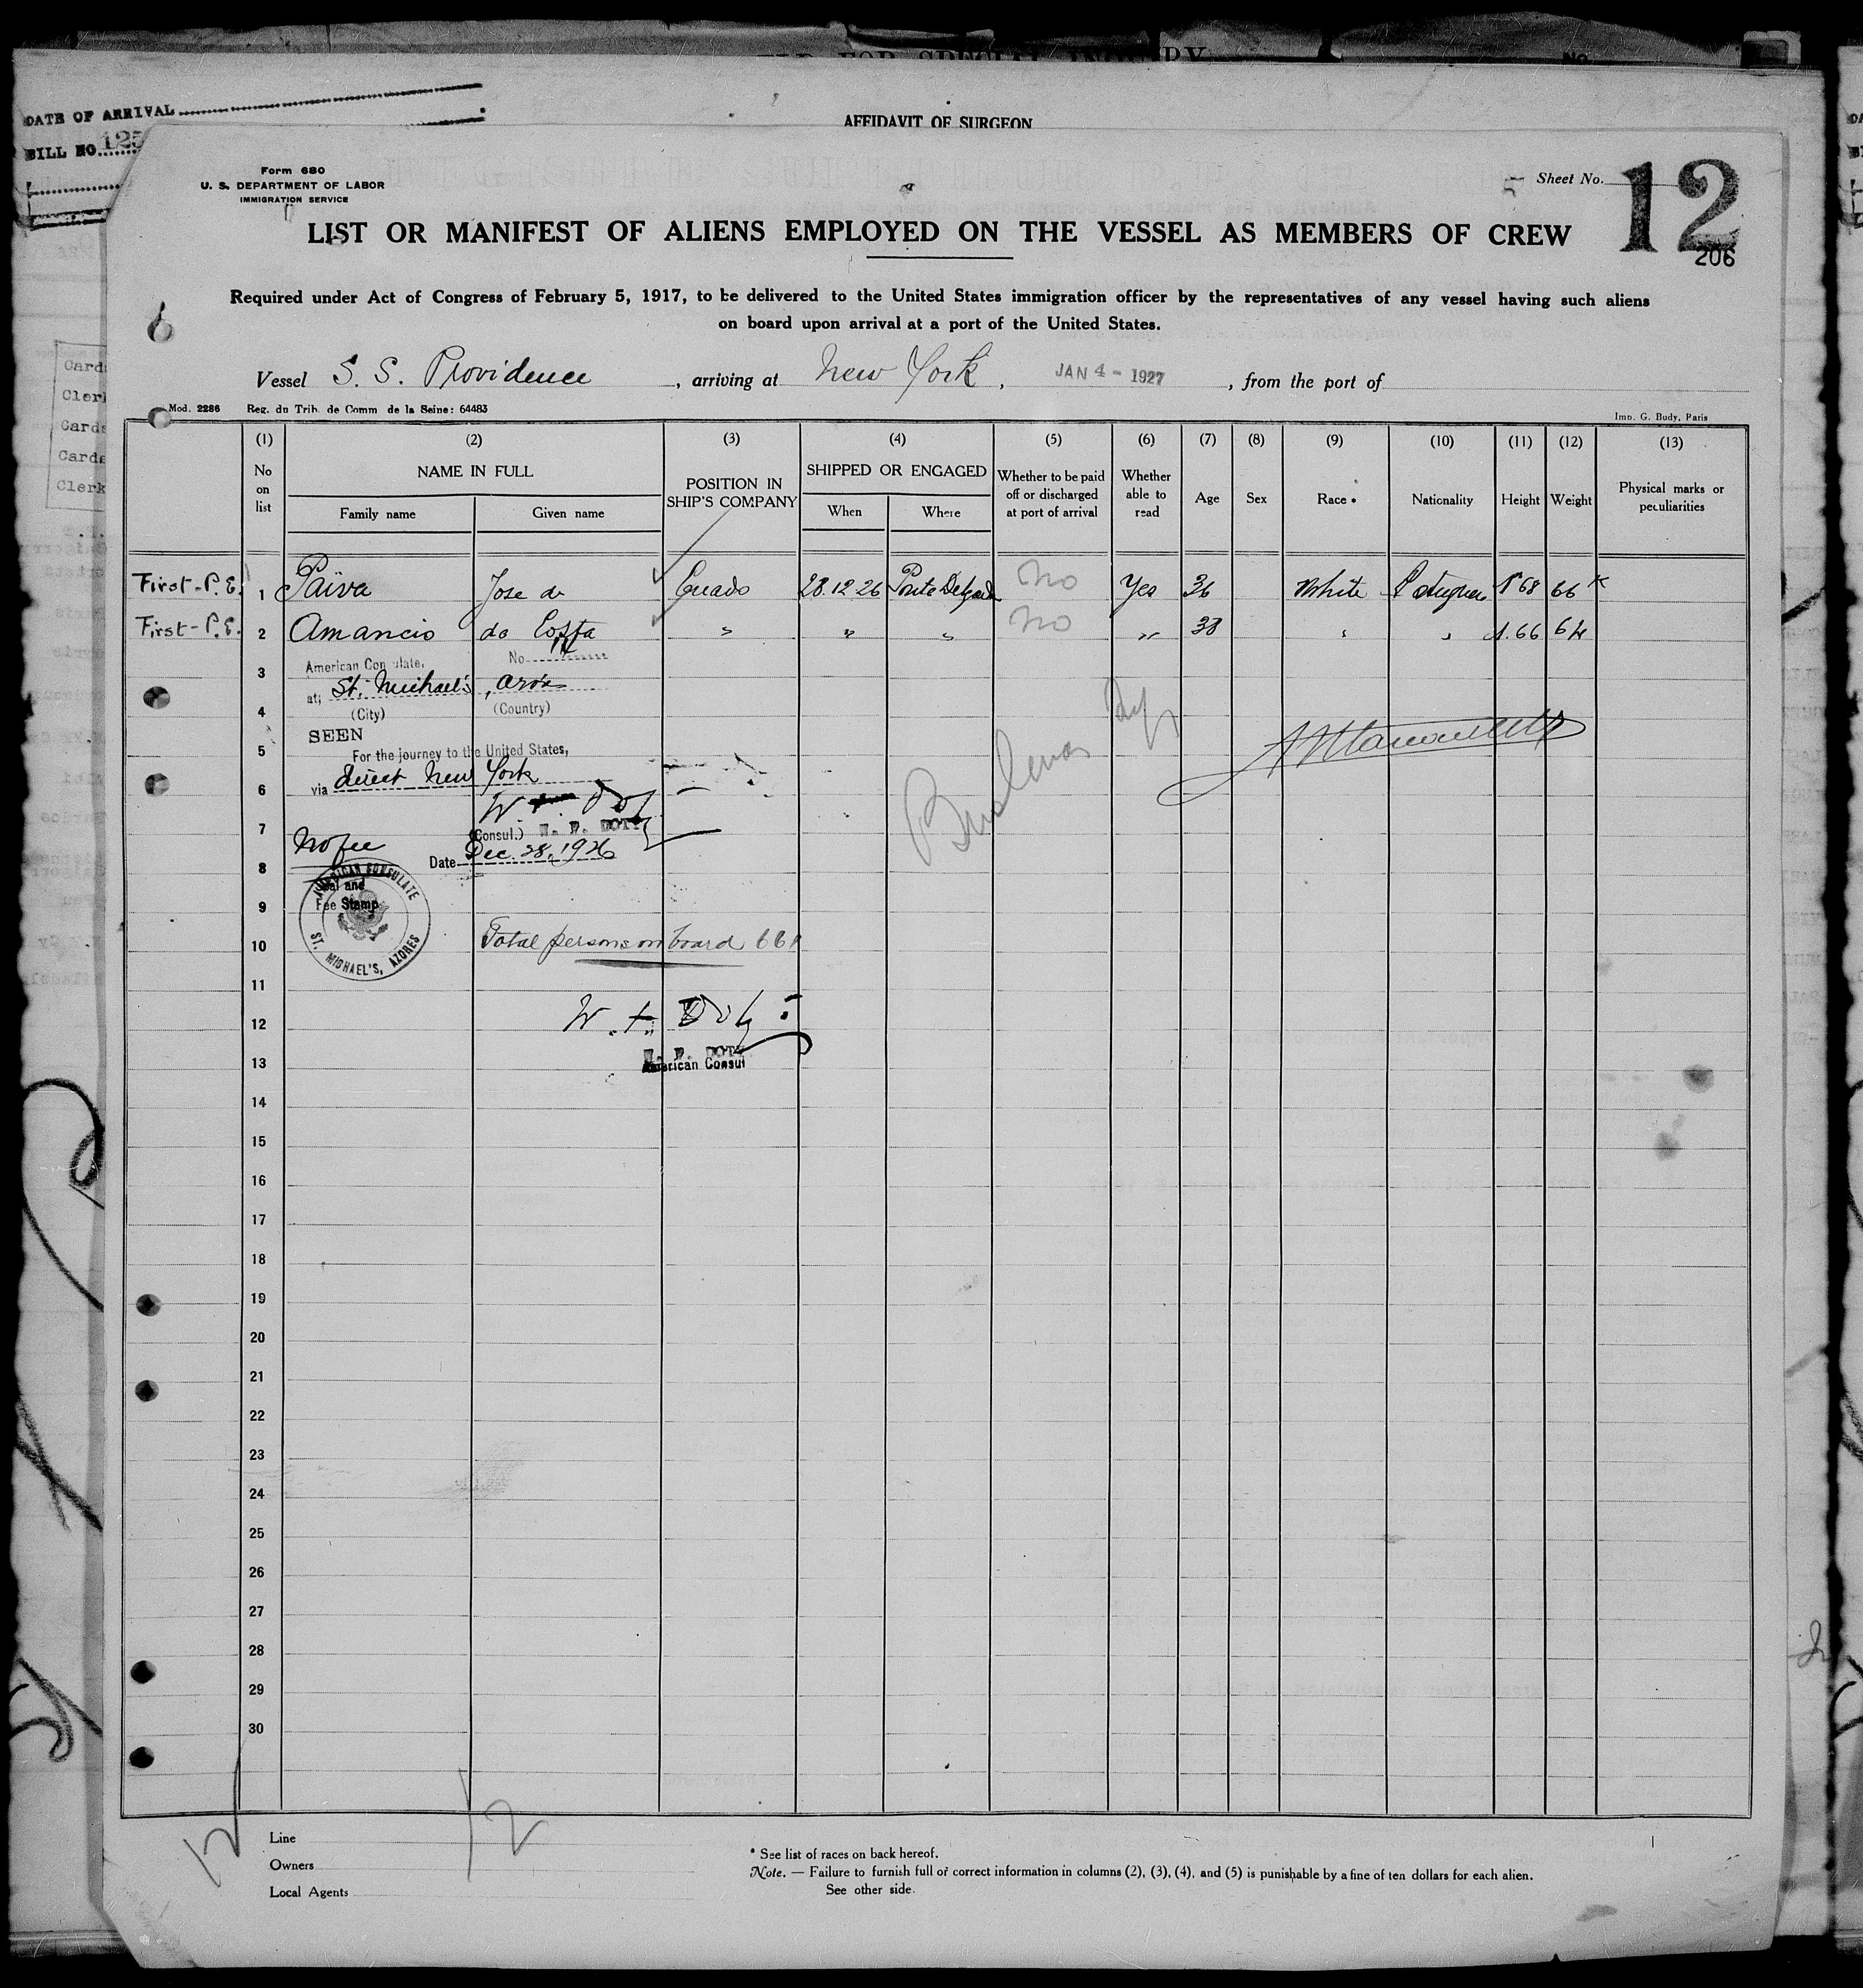 FOR SPECIAL INQUIRY
No
DATE OF ARRIVAL
BILL NO 125
AFFIDAVIT OF SURGEON
Form 680
U. S. DEPARTMENT OF LABOR
IMMIGRATION SERVICE
5 Sheet No. 12
206
LIST OR MANIFEST OF ALIENS EMPLOYED ON THE VESSEL AS MEMBERS OF CREW
Required under Act of Congress of February 5, 1917, to be delivered to the United States immigration officer by the representatives of any vessel having such aliens
on board upon arrival at a port of the United States.
Vessel S. S. Providence, arriving at New York, JAN 4 - 1927, from the port of
Mod. 2286 Reg. du Trib. de Comm de la Seine: 64483 Imp. G. Budy, Paris
Card
Cler
Cards
Carde
Clerk
(1) (2) (3) (4) (5) (6) (7) (8) (9) (10) (11) (12) (13)
No on list NAME IN FULL POSITION IN SHIP'S COMPANY SHIPPED OR ENGAGED Whether to be paid off or discharged at port of arrival Whether able to read Age Sex Race * Nationality Height Weight Physical marks or peculiarities
Family name Given name When Where
First-P.E. 1 Païva Jose de 28.12.26 No Yes 36 White 1.68 66 K
First-P.E. 2 Amancio da Costa " " " No " 38 " " 1.66 64
3 American Consulate, No.
at; St. Michael's,
4 (City) (Country)
SEEN
5 For the journey to the United States,
via direct New York
6
W. Doty
7 No fee (Consul.) W. F. DOTY
Date Dec. 28, 1926
8 AMERICAN CONSULATE
Seal and
9 Fee Stamp
10 Total persons on board
ST. MICHAEL'S, AZORES
11
12 W. F. Doty
13 W. F. DOTY
American Consul
14
15
16
17
18
19
20
21
22
23
24
25
26
27
28
29
30
12
12
Line
Owners
Local Agents
* See list of races on back hereof.
Note. — Failure to furnish full or correct information in columns (2), (3), (4), and (5) is punishable by a fine of ten dollars for each alien.
See other side.